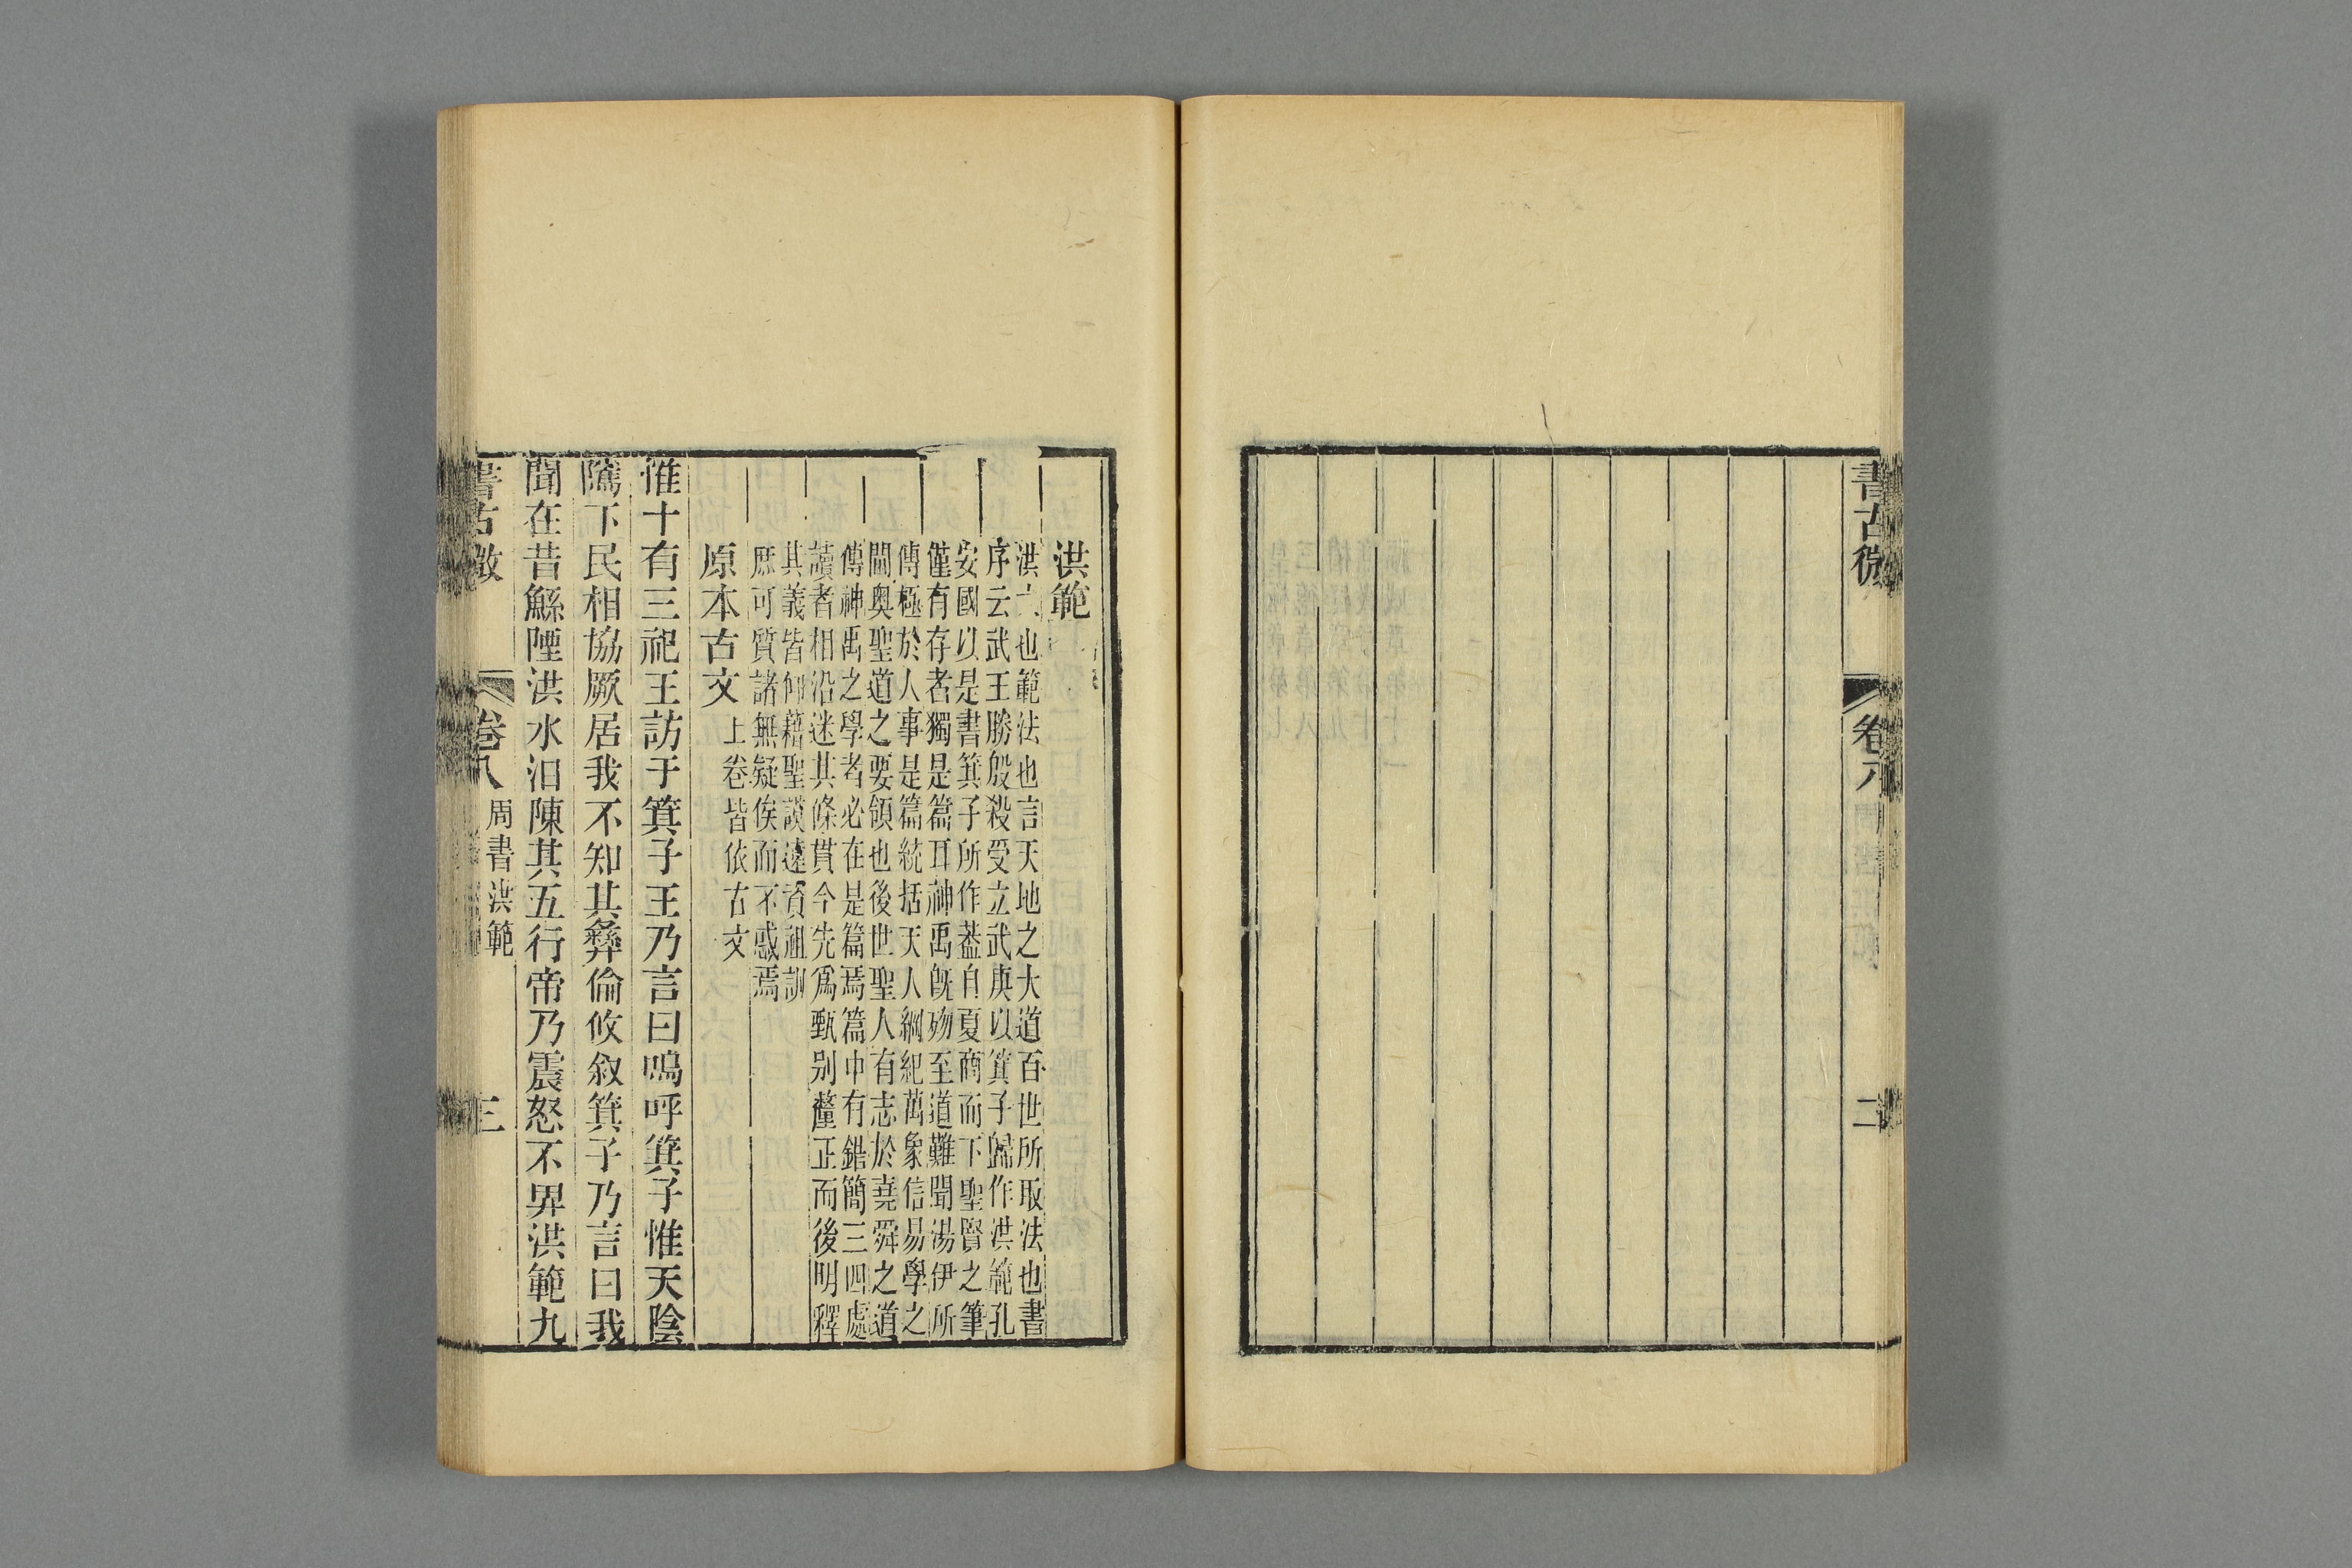 書古微
卷八
二
洪範
洪大也範法也言天地之大道百世所取法也書
序云武王勝殷殺受立武庚以箕子歸作洪範孔
安國以是書箕子所作蓋自夏商而下聖賢之筆
僅有存者獨是篇耳神禹旣歿至道難聞湯伊所
傳極於人事是篇統括天人綱紀萬象信易學之
閫奧聖道之要領也後世聖人有志於堯舜之道
傳神禹之學者必在是篇焉篇中有錯簡三四處
讀者相沿迷其條貫今先爲甄别釐正而後明釋
其義皆仰藉聖謨遠資祖訓
庶可質諸無疑俟而不惑焉
原本古文上卷皆依古文
惟十有三祀王訪于箕子王乃言曰嗚呼箕子惟天陰
隲下民相協厥居我不知其彝倫攸敘箕子乃言曰我
聞在昔鯀陻洪水汩陳其五行帝乃震怒不畀洪範九
書古微
卷八
周書洪範
三